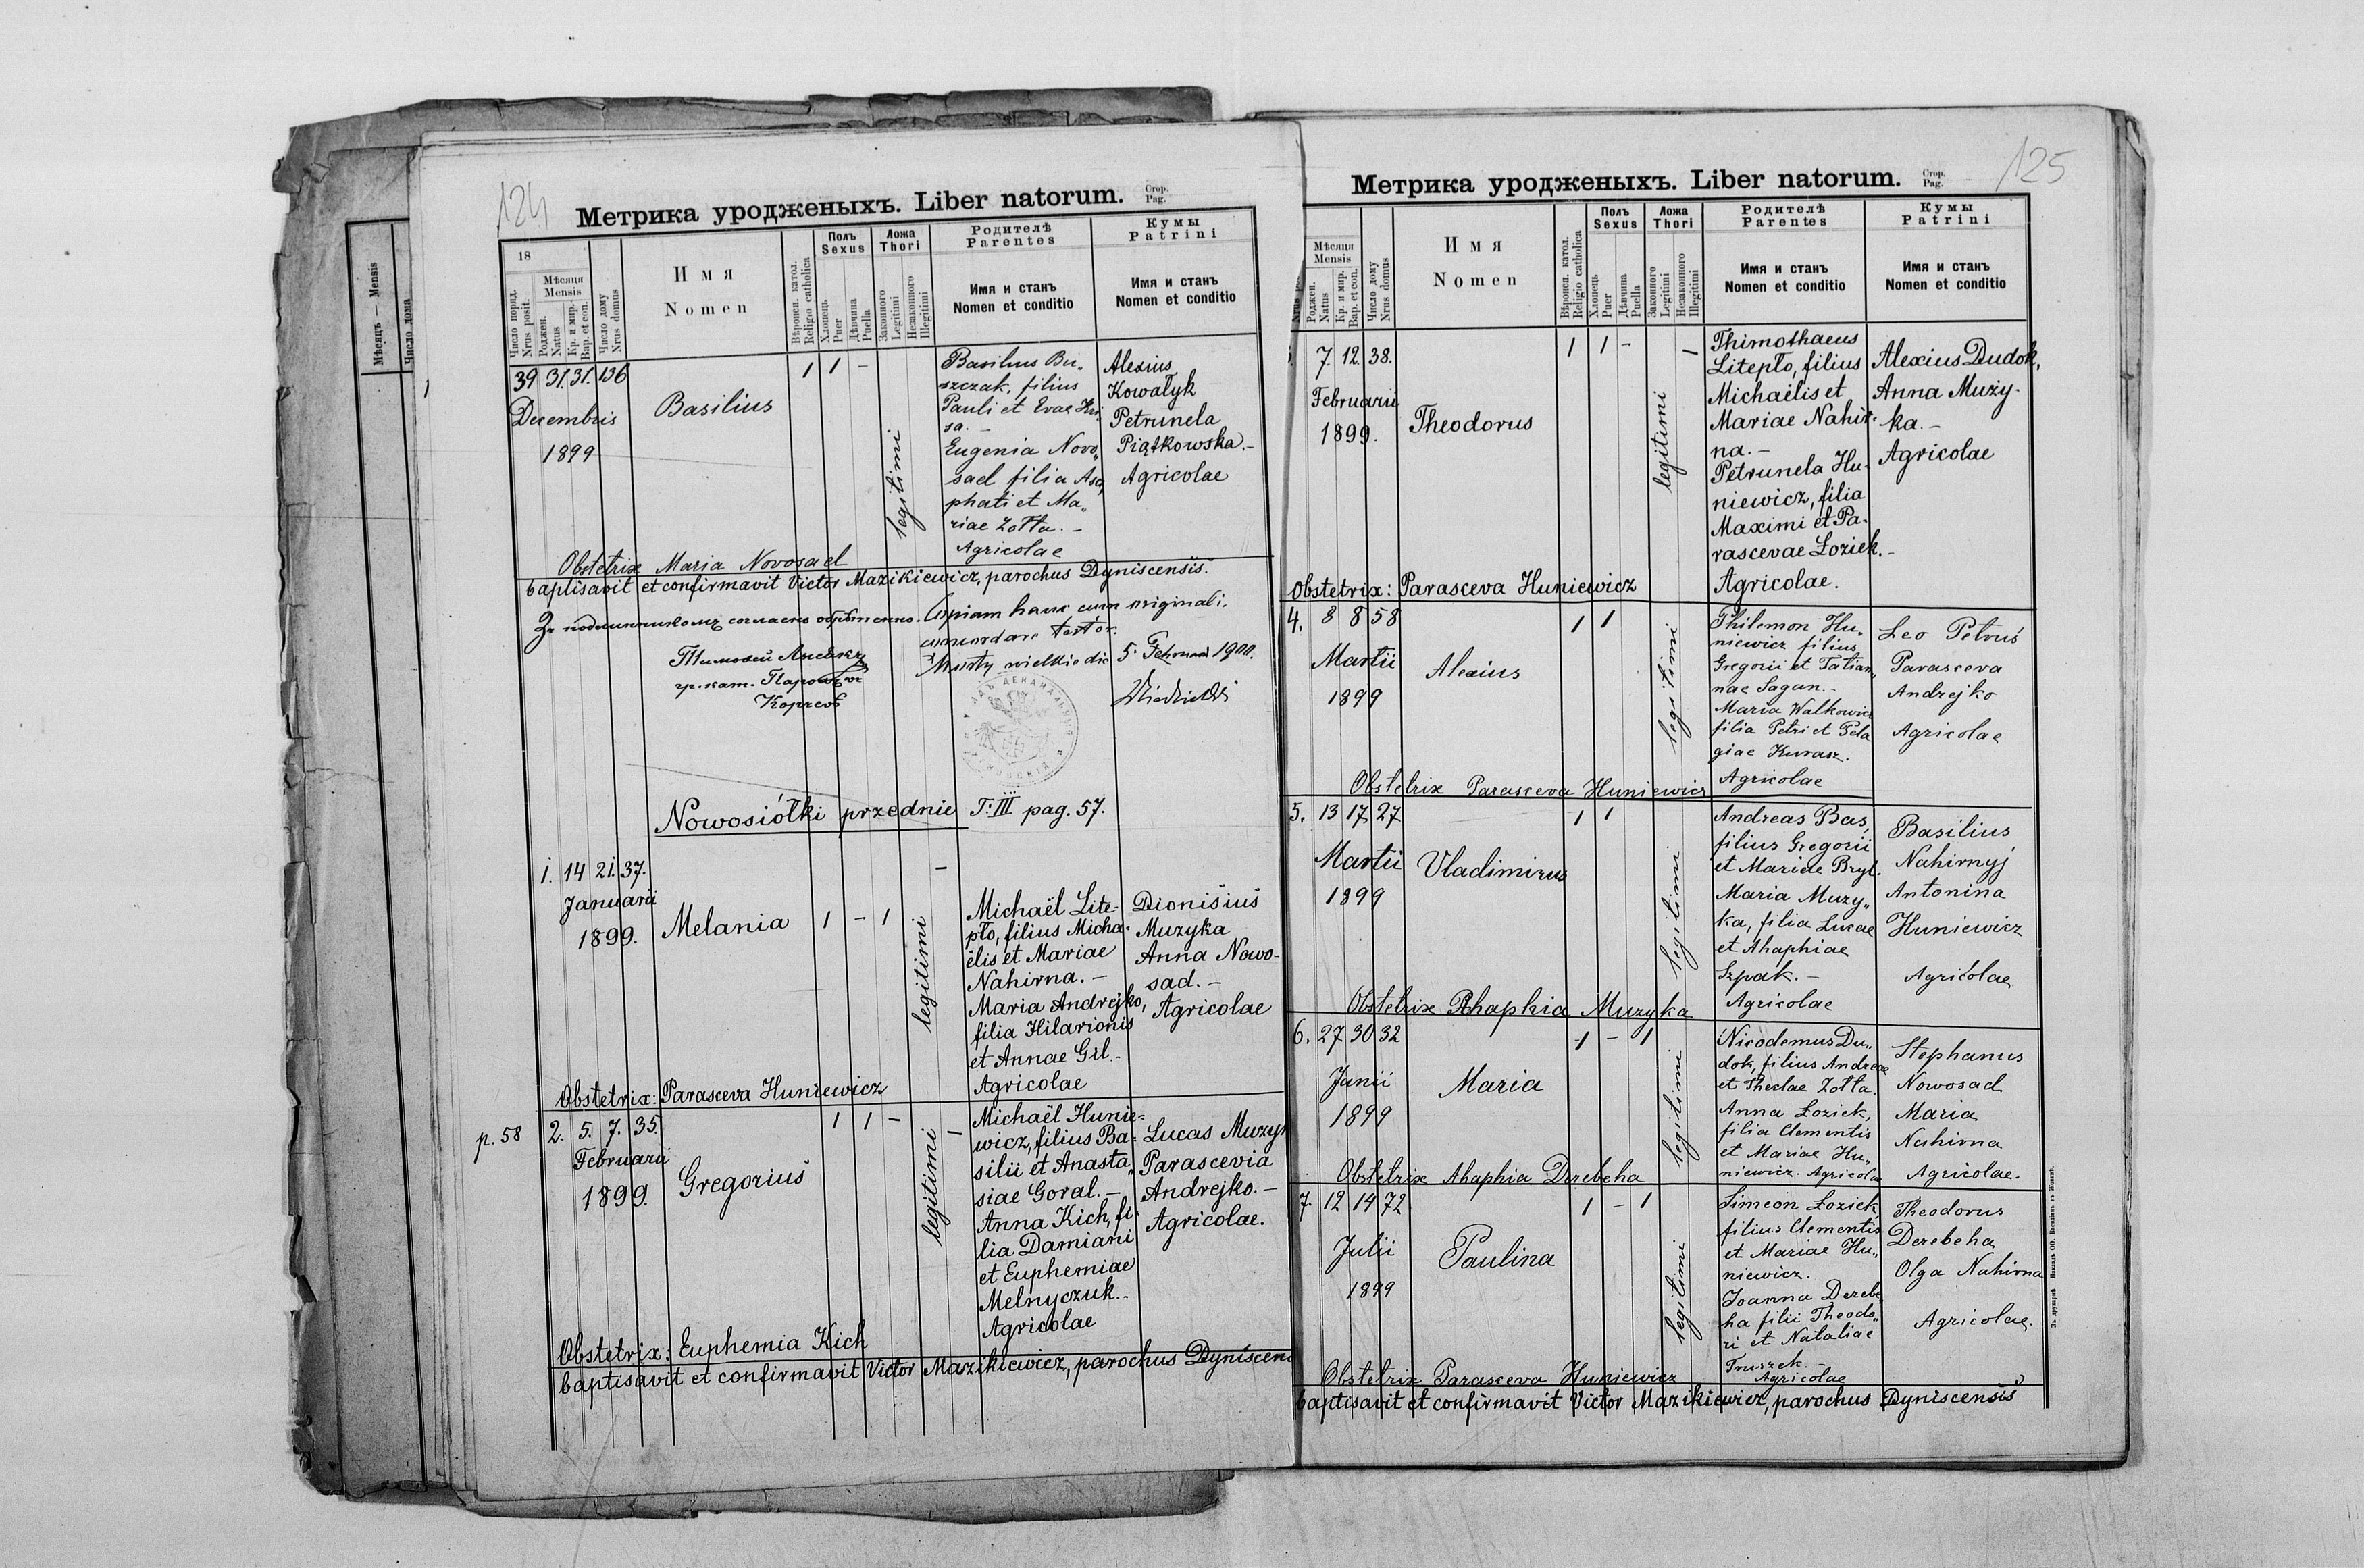 Мѣсяцъ — Mensis
Число дома
124
Метрика уродженыхъ. Liber natorum. Стор. Pag.
18
Число поряд. Nrus posit.
Мѣсяця Mensis
Роджен. Natus
Кр. и мир. Bap. et con.
Число дому Nrus domus
Имя
Nomen
Вѣроисп. катол. Religio catholica
Полъ Sexus
Хлопець Puer
Дѣвчина Puella
Ложа Thori
Законного Legitimi
Незаконного Illegitimi
Родителѣ
Parentes
Имя и станъ
Nomen et conditio
Кумы
Patrini
Имя и станъ
Nomen et conditio
39 31. 31. 136
Decembris
1899
Basilius
1 1 -
legitimi
Basilius Bu„
szczak, filius
Pauli et Evae Hri„
sa. -
Eugenia Novo„
sad filia Asa„
phati et Ma„
riae Zołta. -
Agricolae
Alexius
Kowałyk
Petrunela
Piątkowska. -
Agricolae
Obstetrix Maria Novosad
baptisavit et confirmavit Victor Mazikiewicz, parochus Dyniscensis.
За подлинникомъ согласно
Copiam hanc cum originali
testor.
Mosty wielkie die 5. 1900.
гр. кат.
Nowosiółki przednie T: III pag. 57.
1. 14 21. 37.
Januarii
1899.
Melania
1 - 1 -
legitimi
Michaël Lite-
pło, filius Micha-
ëlis et Mariae
Nahirna. -
Maria Andrejko,
filia Hilarionis
et Annae Gil. -
Agricolae
Dionisius
Muzyka
Anna Nowo-
sad. -
Agricolae
Obstetrix: Parasceva Huniewicz
p. 58
2. 5. 7. 35.
Februarii
1899.
Gregorius
1 1 - -
legitimi
Michaël Hunie-
wicz, filius Ba-
silii et Anasta„
siae Goral. -
Anna Kich, fi-
lia Damiani
et Euphemiae
Melnyczuk. -
Agricolae
Lucas Muzyk
Parascevia
Andrejko. -
Agricolae.
Obstetrix: Euphemia Kich
baptisavit et confirmavit Victor Mazikiewicz, parochus Dyniscen
125
Метрика уродженыхъ. Liber natorum. Стор. Pag.
Мѣсяця Mensis
Роджен. Natus
Кр. и мир. Bap. et con.
Число дому Nrus domus
Имя
Nomen
Вѣроисп. катол. Religio catholica
Полъ Sexus
Хлопець Puer
Дѣвчина Puella
Ложа Thori
Законного Legitimi
Незаконного Illegitimi
Родителѣ
Parentes
Имя и станъ
Nomen et conditio
Кумы
Patrini
Имя и станъ
Nomen et conditio
7. 12. 38.
Februarii
1899.
Theodorus
1 1 - 1
legitimi
Thimothaeus
Litepło, filius
Michaëlis et
Mariae Nahir-
na. -
Petrunela Hu-
niewicz, filia
Maximi et Pa-
rascevae Łoziek. -
Agricolae.
Alexius Dudok,
Anna Muzy-
ka. -
Agricolae
Obstetrix: Parasceva Huniewicz
4. 8 8 58
Martii
1899
Alexius
1 1
legitimi
Philemon Hu„
niewicz filius
Gregorii et Tatian„
nae Sagan. -
Maria Walkowicz
filia Petri et Pela
giae Kurasz.
Agricolae
Leo Petruś
Parasceva
Andrejko
Agricolae
Obstetrix Parasceva Huniewicz
5. 13 17 27
Martii
1899
Vladimirus
1 1
legitimi
Andreas Bas,
filius Gregorii
et Mariae Bryl.
Maria Muzy„
ka, filia Lucae
et Ahaphiae
Szpak. -
Agricolae
Basilius
Nahirnyj
Antonina
Huniewicz
Agricolae
Obstetrix Ahaphia Muzyka
6. 27 30 32
Junii
1899
Maria
1 - 1
legitimi
Nicodemus Du„
dok, filius Andreae
et Theclae Zołta.
Anna Łoziek,
filia Clementis
et Mariae Hu„
niewicz. Agricolae
Stephanus
Nowosad
Maria
Nahirna
Agricolae.
Obstetrix Ahaphia Derebeha
7. 12 14 72
Julii
1899
Paulina
1 - 1
legitimi
Simeon Łoziek,
filius Clementis
et Mariae Hu„
niewicz.
Joanna Derebe„
ha filii Theodo„
ri et Nataliae
Truszek. -
Agricolae
Theodorus
Derebeha
Olga Nahirna
Agricolae.
Obstetrix Parasceva Huniewicz
baptisavit et confirmavit Victor Mazikiewicz, parochus Dyniscensis